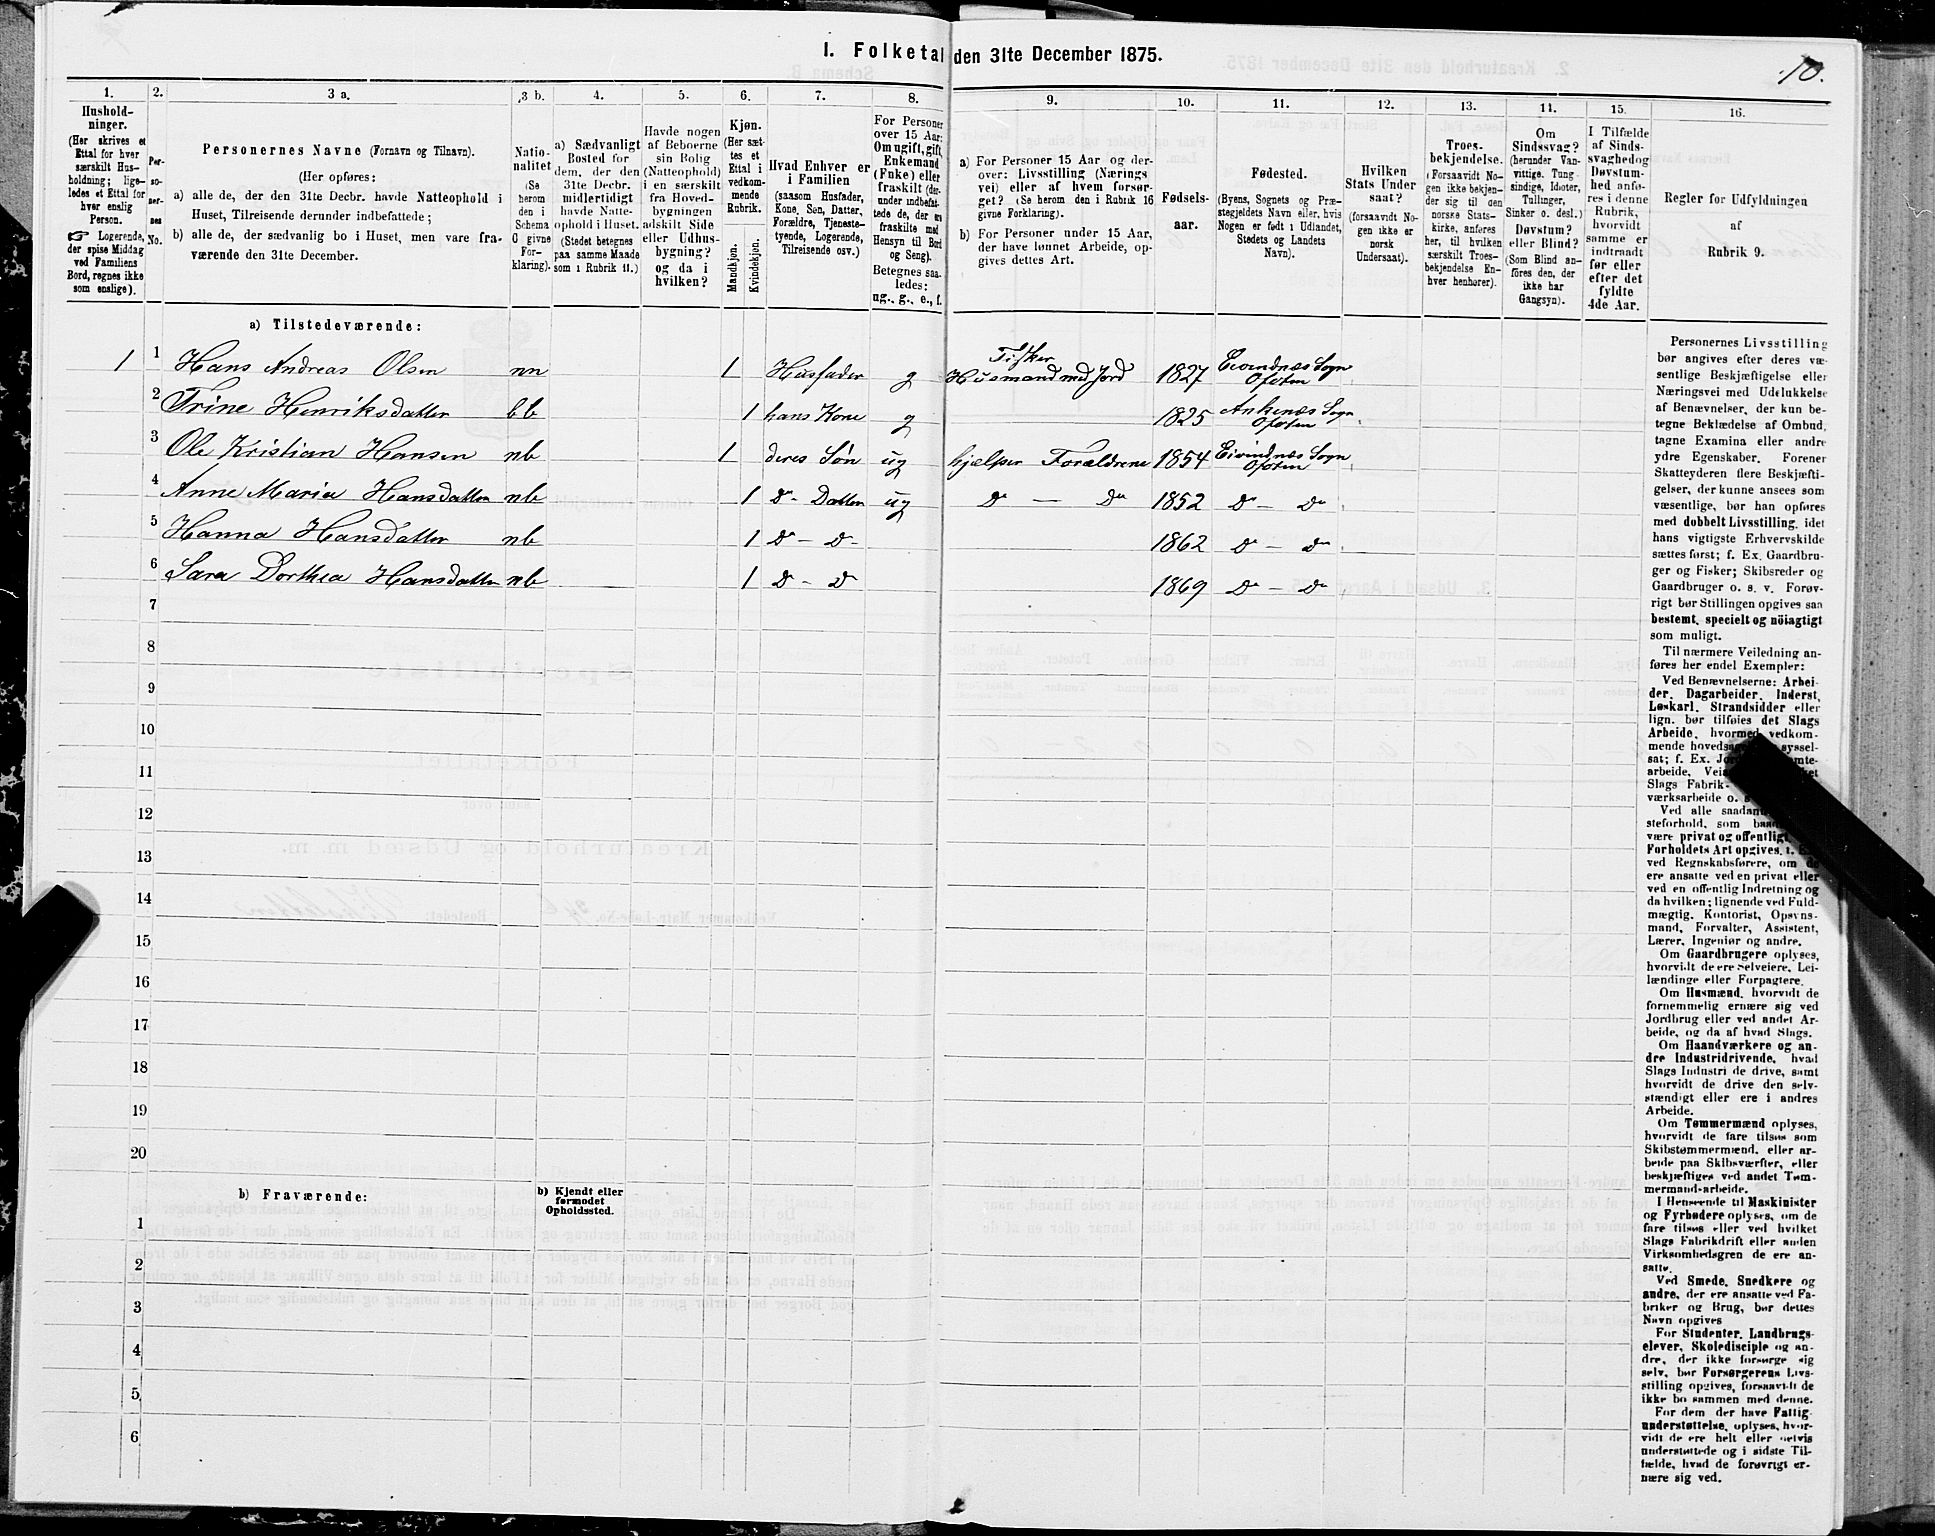 I. Folketal den 31te December 1875.
10.
1.
Hushold-
ninger.
(Her skrives et
Ettal for hver
særskilt Hus-
holdning; lige-
ledes et Ettal for
hver enslig
Person.
☞ Logerende,
der spise Middag
ved Familiens
Bord, regnes ikke
som enslige).
2.
Per-
so-
ner-
nes
No.
3 a.
Personernes Navne (Fornavn og Tilnavn).
(Her opføres:
a) alle de, der den 31te Decbr. havde Natteophold i
Huset, Tilreisende derunder indbefattede;
b) alle de, der sædvanlig bo i Huset, men vare fra-
værende den 31te December.
3 b.
Natio-
nalitet
(Se
herom
den i
Schema
O givne
For-
klaring).
4.
a) Sædvanligt
Bosted for
dem, der den
31te Decbr.
midlertidigt
havde Natte-
ophold i Huset.
(Stedet betegnes
paa samme Maade
som i Rubrik 11.)
5.
Havde nogen
af Beboerne
sin Bolig
(Natteophold)
i en særskilt
fra Hoved-
bygningen
adskilt Side
eller Udhus-
bygning?
og da i
hvilken?
6.
Kjøn.
(Her sæt-
tes et
Ettal i
vedkom-
mende
Rubrik.
Mandkjøn.
Kvindekjøn.
7.
Hvad Enhver er
i Familien
(saasom Husfader,
Kone, Søn, Datter,
Forældre, Tjeneste-
tyende, Logerende,
Tilreisende osv.)
8.
For Personer
over 15 Aar:
Om ugift, gift,
Enkemand
(Enke) eller
fraskilt (der-
under indbefat-
tede de, der er
fraskilte med
Hensyn til Bord
og Seng).
Betegnes saa-
ledes:
ug., g., e., f.
9.
a) For Personer 15 Aar og der-
over: Livsstilling (Nærings
vei) eller af hvem forsør-
get? (Se herom den i Rubrik 16
givne Forklaring).
b) For Personer under 15 Aar,
der have lønnet Arbeide, op-
gives dettes Art.
10.
Fødsels-
aar.
11.
Fødested.
(Byens, Sognets og Præ-
stegjeldets Navn eller, hvis
Nogen er født i Udlandet,
Stedets og Landets
Navn).
12.
Hvilken
Stats Under
saat?
(forsaavidt No-
gen ikke er
norsk
Undersaat).
13.
Troes-
bekjendelse.
(Forsaavidt No-
gen ikke bekjen-
der sig til den
norske Stats-
kirke, anføres
her, til hvilken
særskilt Troes-
bekjendelse En-
hver henhører).
14.
Om
Sindssvag?
(herunder Van-
vittige, Tung-
sindige, Idioter,
Tullinger,
Sinker o. desl.)
Døvstum?
eller Blind?
(Som Blind an-
føres den, der
ikke har
Gangsyn).
15.
I Tilfælde
af Sinds-
svaghed og
Døvstum-
hed anfø-
res i denne
Rubrik,
hvorvidt
samme er
indtraadt
før eller
efter det
fyldte
4de Aar.
16.
Regler for Udfyldningen
af
Rubrik 9.
a) Tilstedeværende:
1 1 Hans Andreas Olsen nn 1 Husfader g Fisker Husmand med Jord 1827 Eivindnæs Sogn Ofoten
2 Trine Henriksdatter bb 1 hans Kone g 1825 Ankenæs Sogn Ofoten
3 Ole Kristian Hansen nb 1 deres Søn ug hjælper Forældrene 1854 Eivindnæs Sogn Ofoten
4 Anne Maria Hansdatter nb 1 Do - Datter ug Do — Do 1852 Do — Do
5 Hanna Hansdatter nb 1 Do - Do 1862 Do — Do
6 Sara Dorthea Hansdatter nb 1 Do - Do 1869 Do — Do
7
8
9
10
11
12
13
14
15
16
17
18
19
20
b) Fraværende:
b) Kjendt eller
formodet
Opholdssted.
1
2
3
4
5
6
Personernes Livsstilling
bør angives efter deres væ-
sentlige Beskjæftigelse eller
Næringsvei med Udelukkelse
af Benævnelser, der kun be-
tegne Beklædelse af Ombud,
tagne Examina eller andre
ydre Egenskaber. Forener
Skatteyderen flere Beskjæfti-
gelser, der kunne ansees som
væsentlige, bør han opføres
med dobbelt Livsstilling, idet
hans vigtigste Erhvervskilde
sættes først; f. Ex. Gaardbru-
ger og Fisker; Skibsreder og
Gaardbruger o. s. v. Forøv-
rigt bør Stillingen opgives saa
bestemt, specielt og nöiagtigt
som muligt.
Til nærmere Veiledning an-
føres her endel Exempler:
Ved Benævnelserne: Arbei-
der, Dagarbeider, Inderst,
Løskarl, Strandsidder eller
lign. bør tilføies det Slags
Arbeide, hvormed vedkom-
mende hovedsa syssel-
sat; f. Ex. mte-
arbeide, Vei
Slags Fabrik-
værksarbeide o. s
Ved alle saadan
steforhold, som
være privat og offentligt,
Forholdets Art opgives,
ved Regnskabsførere, om de
ere ansatte ved en privat eller
ved en offentlig Indretning og
da hvilken; lignende ved Fuld-
mægtig, Kontorist, Opsyns-
mand, Forvalter, Assistent,
Lærer, Ingeniør og andre.
Om Gaardbrugere oplyses,
hvorvidt de ere Selveiere, Lei-
lændinge eller Forpagtere.
Om Husmænd, hvorvidt de
fornemmelig ernære sig ved
Jordbrug eller ved andet Ar-
beide, og da af hvad Slags.
Om Haandværkere og an-
dre Industridrivende, hvad
Slags Industri de drive, samt
hvorvidt de drive den selv-
stændigt eller ere i andres
Arbeide.
Om Tømmermænd oplyses,
hvorvidt de fare tilsøs som
Skibstømmermænd, eller ar-
beide paa Skibsværfter, eller
beskjæftiges ved andet Tøm-
mermand-arbeide.
I Henseende til Maskinister
og Fyrbødere oplyses, om de
fare tilsøs eller ved hvilket
Slags Fabrikdrift eller anden
Virksomhedsgren de ere an-
satte.
Ved Smede, Snedkere og
andre, der ere ansatte ved Fa-
briker og Brug, bør dettes
Navn opgives
For Studenter, Landbrugs-
elever, Skoledisciple og an-
dre, der ikke forsørge sig
selv, bør Forsørgerens Livs-
stilling opgives, forsaavidt de
ikke bo sammen med denne.
For dem der have Fattig-
understøttelse, oplyses, hvor-
vidt de ere helt eller delvis
understøttede og i sidste Til-
fælde, hvad de forøvrigt er-
nære sig ved.